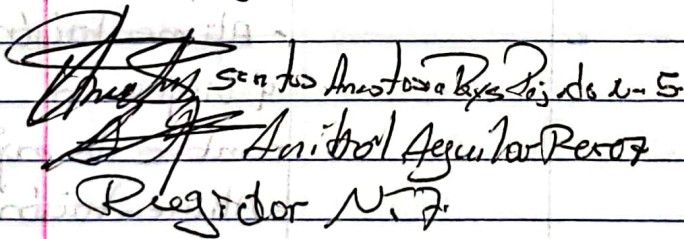 Santos Anastasia Reyes Regidor N-5
Anibal Aguilar Perez
Regidor N.7.